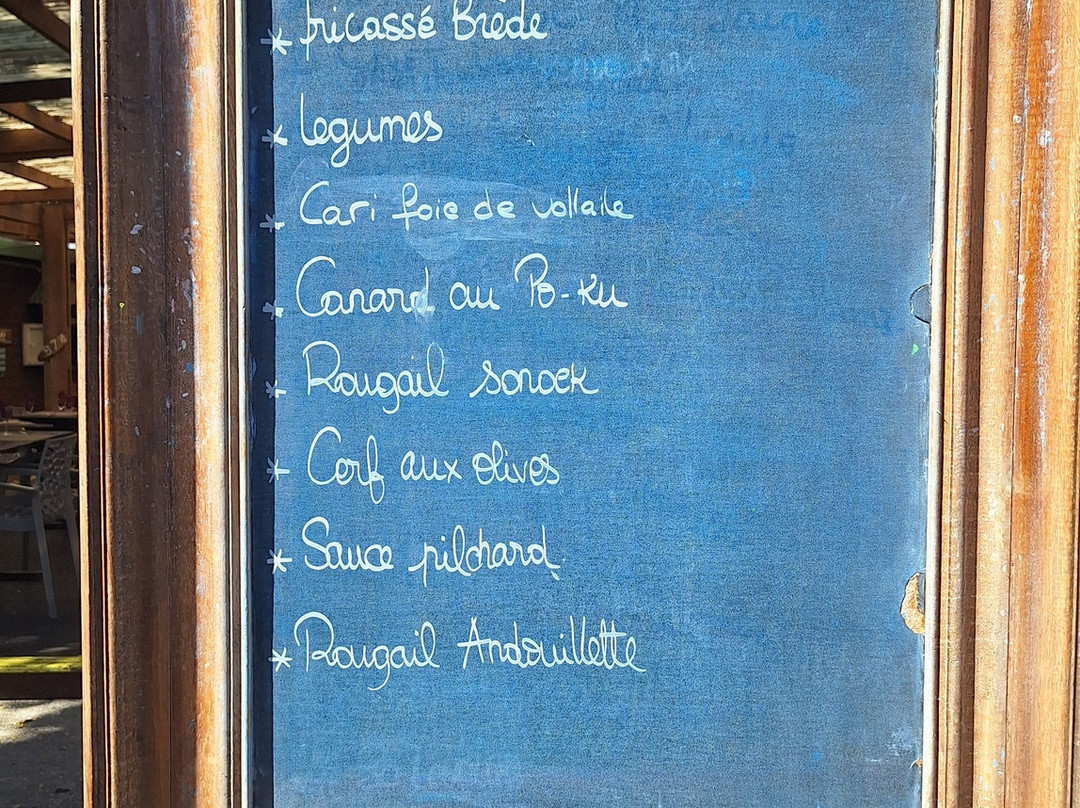 * fricassé Brède
* Legumes
* Cari foie de vollaile
* Canard au Po-Ku
* Rougail sonoek
* Cerf aux olives
* Sauce pilchard.
* Rougail Andouillette
974